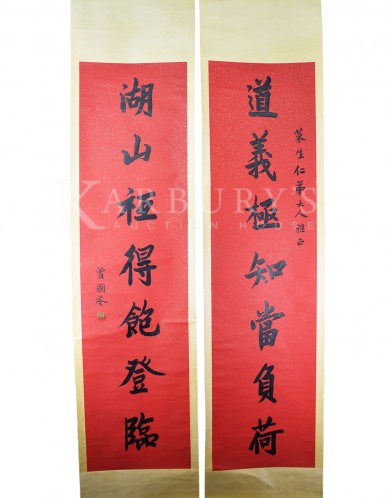 道義極知當負荷
策生仁弟大人雅正
湖山得飽登臨
曾國荃
KARBURY'S
AUCTION HOUSE